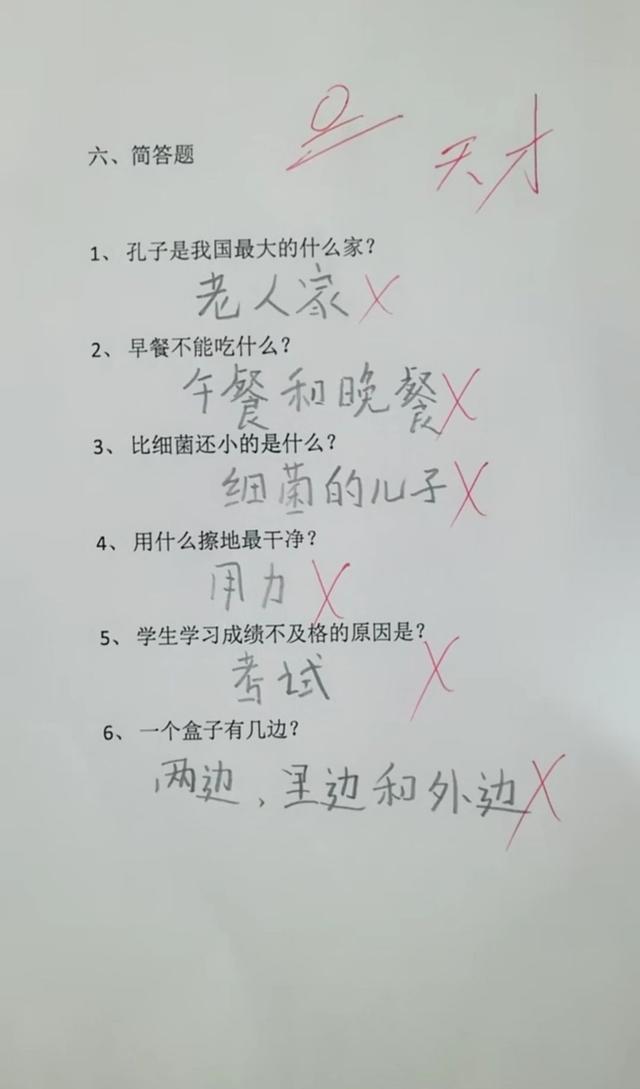 0
天才
六、简答题
1、孔子是我国最大的什么家?
老人家
2、早餐不能吃什么?
午餐和晚餐
3、比细菌还小的是什么?
细菌的儿子
4、用什么擦地最干净?
用力
5、学生学习成绩不及格的原因是?
考试
6、一个盒子有几边?
两边,里边和外边